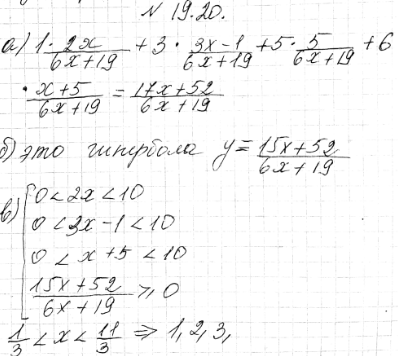 № 19.20.
а) 1 · 2x/(6x+19) + 3 · (3x-1)/(6x+19) + 5 · 5/(6x+19) + 6
· (x+5)/(6x+19) = (17x+52)/(6x+19)
б) это гипербола y = (15x+52)/(6x+19)
в) { 0 < 2x < 10
0 < 3x - 1 < 10
0 < x + 5 < 10
(15x+52)/(6x+19) ≥ 0
1/3 < x < 11/3 ⇒ 1, 2, 3,